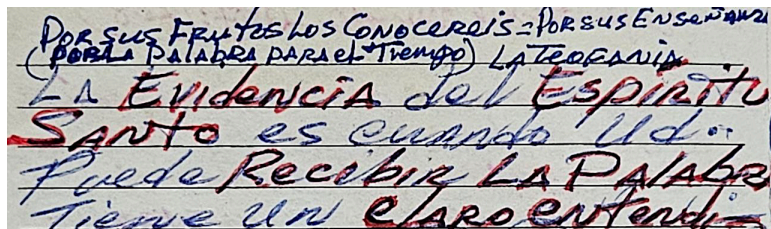 POR SUS FRUTOS LOS CONOCEREIS = POR SUS ENSEÑANZ
(POR LA PALABRA PARA el TIEMPO) LA TEOFANIA
LA EvideNCiA del Espiritu
SANto es cuando Ud.
Puede Recibir LA PALAbR
Tiene un CLARO entendi-